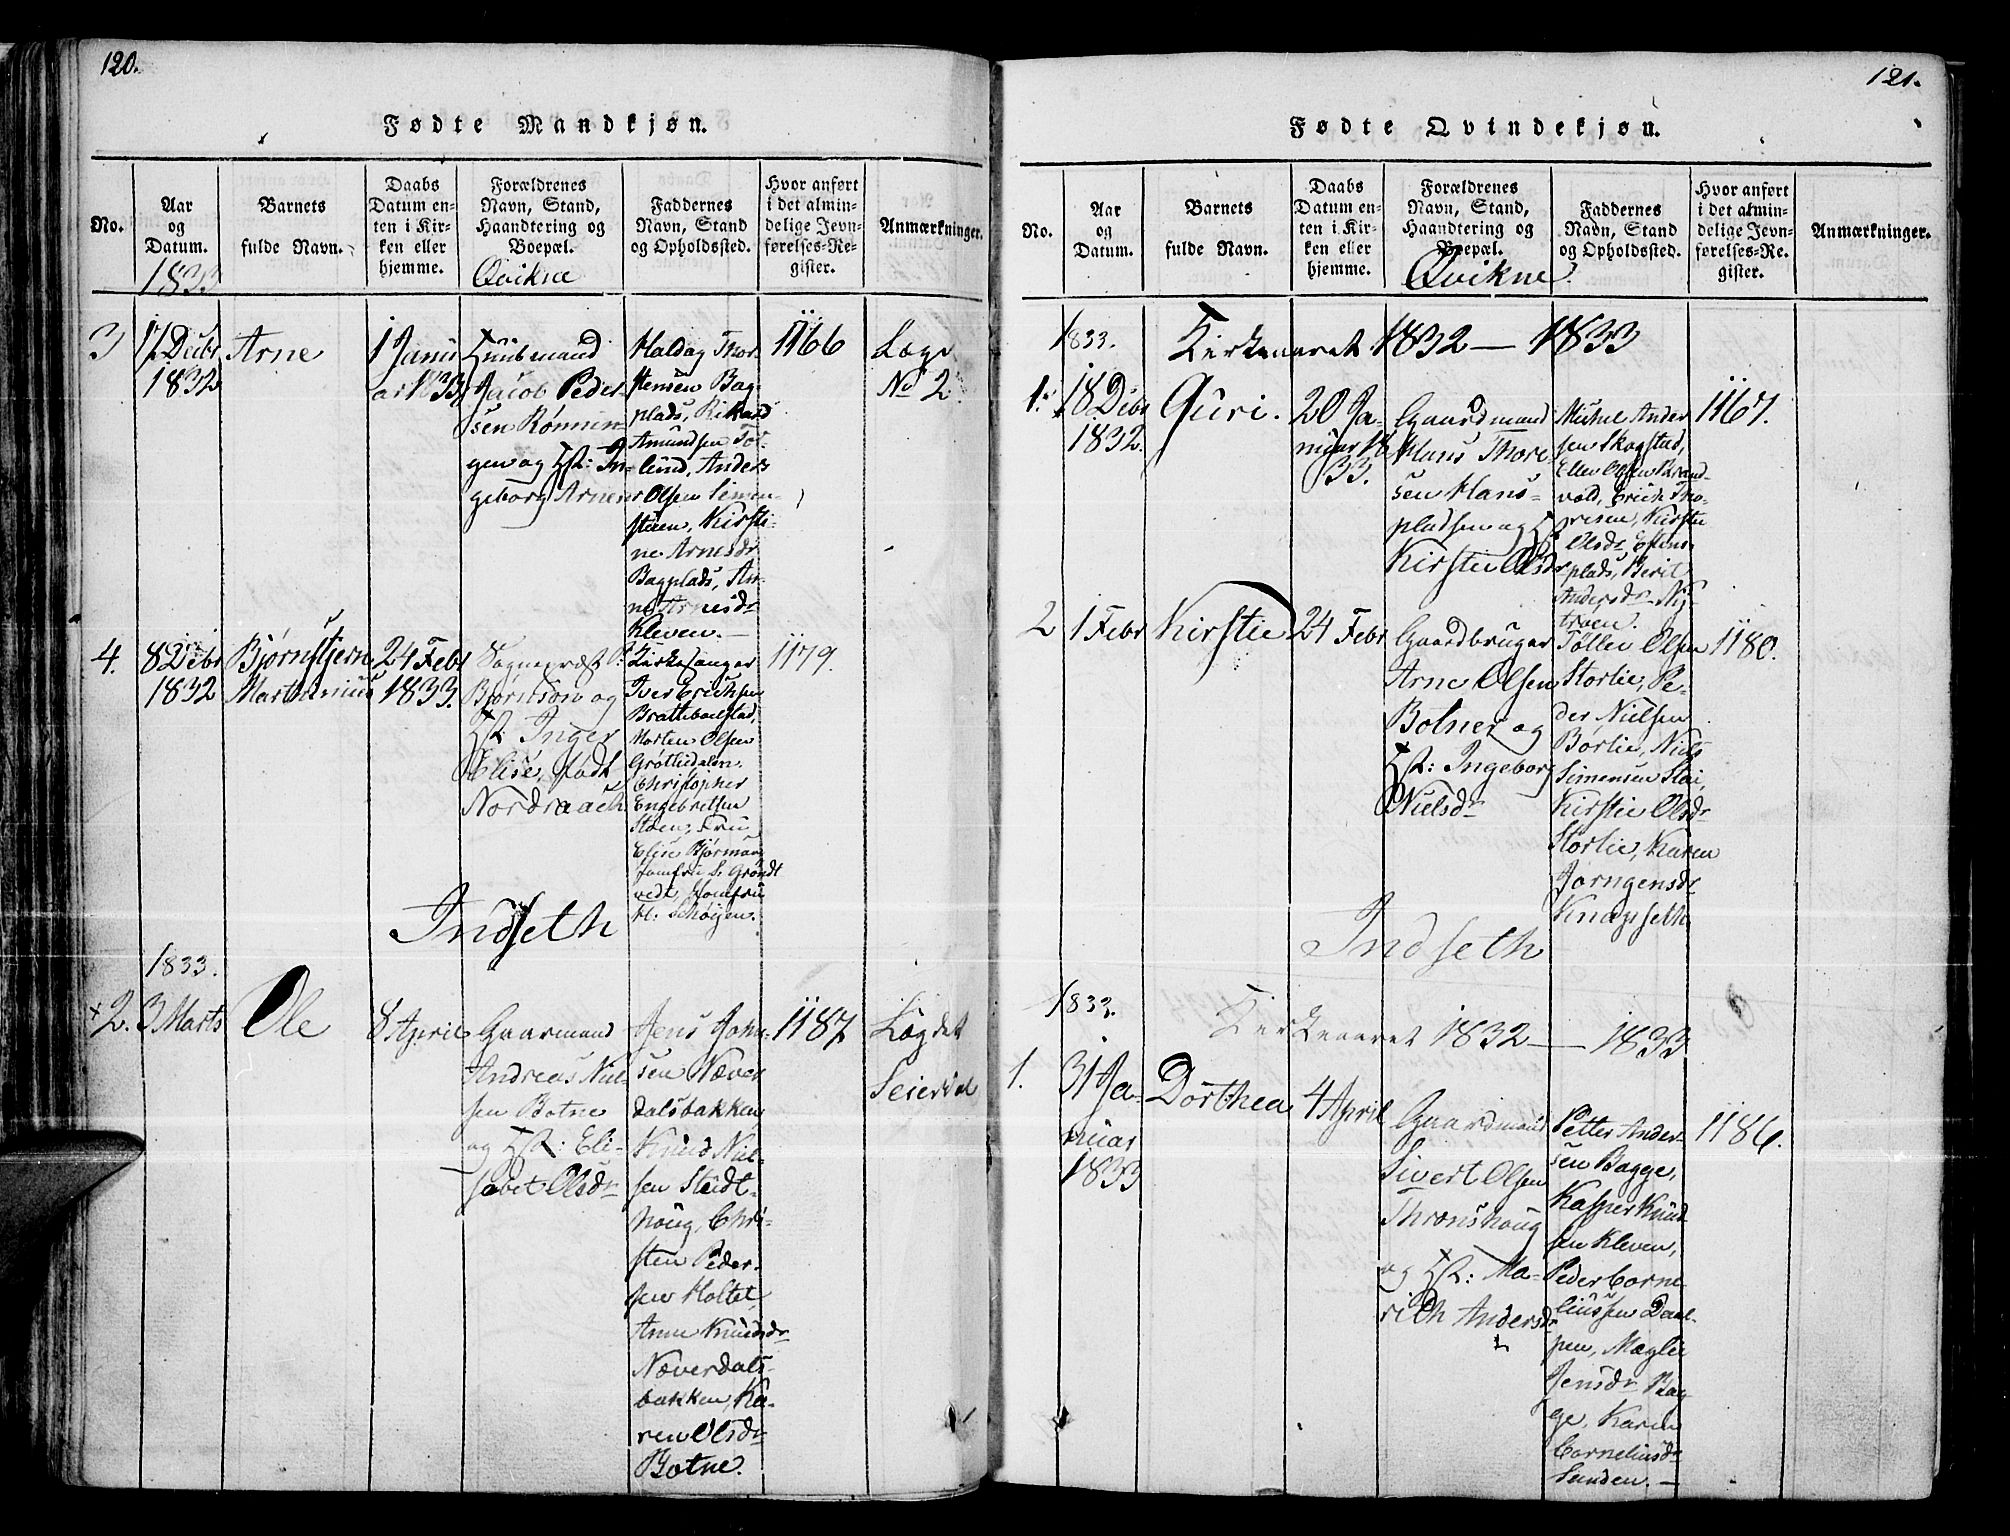 120.
Fødte Mandkjøn.
No.
Aar
og
Datum.
1833
Barnets
fulde Navn.
Daabs
Datum en-
ten i Kir-
ken eller
hjemme.
Forældrenes
Navn, Stand,
Haandtering og
Boepæl.
Qvikne
Faddernes
Navn, Stand
og Opholdssted.
Hvor anført
i det almin-
delige Jevn-
førelses-Re-
gister.
Anmærkninger.
3
17 Decbr
1832
Arne
1 Janu
ar 1833
Huusmand
Jacob Peder-
sen Rønnin-
gen og Hst: In-
geborg Arnesdr
Haldag Thor-
stensen Bag-
plads, Rikard
Amundsen
Anders
Olsen Simen-
stuen, Kirsti-
ne Arnesdr
Bagplads, An-
ne Arnesdr
Kleven.
1166
Løgn
No 2.
4.
8 Decbr
1832
Bjørnstjerne
Marthinius
24 Febr
1833.
Sognepræst P.
Bjørnson og
Hst: Inger
Elise, født
Nordraach
Kirkesanger
Iver Ericksen
Brattebaelstad,
Morten Olsen
Grøtliedalen,
Christopher
Engebretsen
Stoen, Fru
Elise Bjørnson,
Jomfrue S. Grøndt
vedt, Jomfru
H: Schøyen.
1179.
Indseth
1833.
2.
3 Marts
Ole
8 April
Gaarmand
Andreas Niel-
sen Botne
og Hst: Eli-
sabet Olsdr
Jens John-
sen Næver
dalsbakken,
Knud Niel-
sen Stedt-
houg, Chri-
sten Peder-
sen Holtet,
Anne Knudsdr
Næverdals-
bakken, Ka-
ren Olsdr
Botne.
1187
Løgdet
121.
Fødte Qvindekjøn.
No.
Aar
og
Datum.
Barnets
fulde Navn.
Daabs
Datum en-
ten i Kir-
ken eller
hjemme.
Forældrenes
Navn, Stand,
Haandtering og
Boepæl.
Qvikne.
Faddernes
Navn, Stand
og Opholdssted.
Hvor anført
i det almin-
delige Jevn-
førelses-Re-
gister.
Anmærkninger.
1833.
Kirkeaaret 1832 — 1833
1.
18 Decbr
1832.
Guri.
20 Ja-
nuar 18
33.
Gaardmand
Hans Thore-
sen Hans-
pladsen og Hst
Kirsten Olsdr
Ander
sen Skogstad,
Ellev Olsen Strand-
vold, Erick Tho-
resen, Kirstie
Olsdr Estens-
plads, Berit
Andersdr Ny-
troen.
1167.
2
1 Febr
Kirstie
24 Febr
Gaardbruger
Arne Olsen
Botner og
Hst: Ingeborg
Nielsdr
Tollev Olsen
Storlie, Pe-
der Nielsen
Børlie, Niels
Simensen Stai,
Kirstie Olsdr
Storlie, Karen
Jørngensdr
Knapseth.
1180.
Indseth
1833.
Kirkeaaret 1832 — 1833
1.
31 Ja-
nuar
1833
Dorthea
4 April
Gaardmand
Sivert Olsen
Thronshoug
og Hst: Ma-
rith Andersdr
Petter Ander-
sen Bagge,
Kasper Knud-
sen Kleven,
Peder Corne
liussen Daal-
pen, Maglie
Jensdr Bag
ge, Karen
Corneliusdr
Sunden. —
1186.